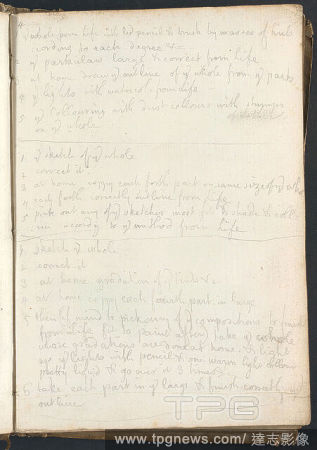 whole from Life with led pencil & brush by masses of
cording to each degree &c.
2 ye particulars large & correct from life
3 at home draw ye outline of ye whole from ye parts
4 ye lights with from life
5 ye Colouring with dust colours with
on ye whole
1 ye sketch of ye whole
2 correct it
3 at home coppy each forth part on same size of ye whole
4 each forth correctly outline from Life
5 pick out any of ye sketches most fit to shade & coll
ur according to ye method from Life
1 sketch ye whole
2 correct it
3 at home gradation of ye &c
4 at home coppy each fourth part in large
5 then if mind to pick any of ye compositions to finish
from life fit to paint after take ye whole
whose gradations are done at home & light
up ye lights with pencil & one warm light
pretty liquid & go over it 3 times
6 take each part in ye large & finish correctly
outline
TPG
www.tpgnews.com / 達志影像